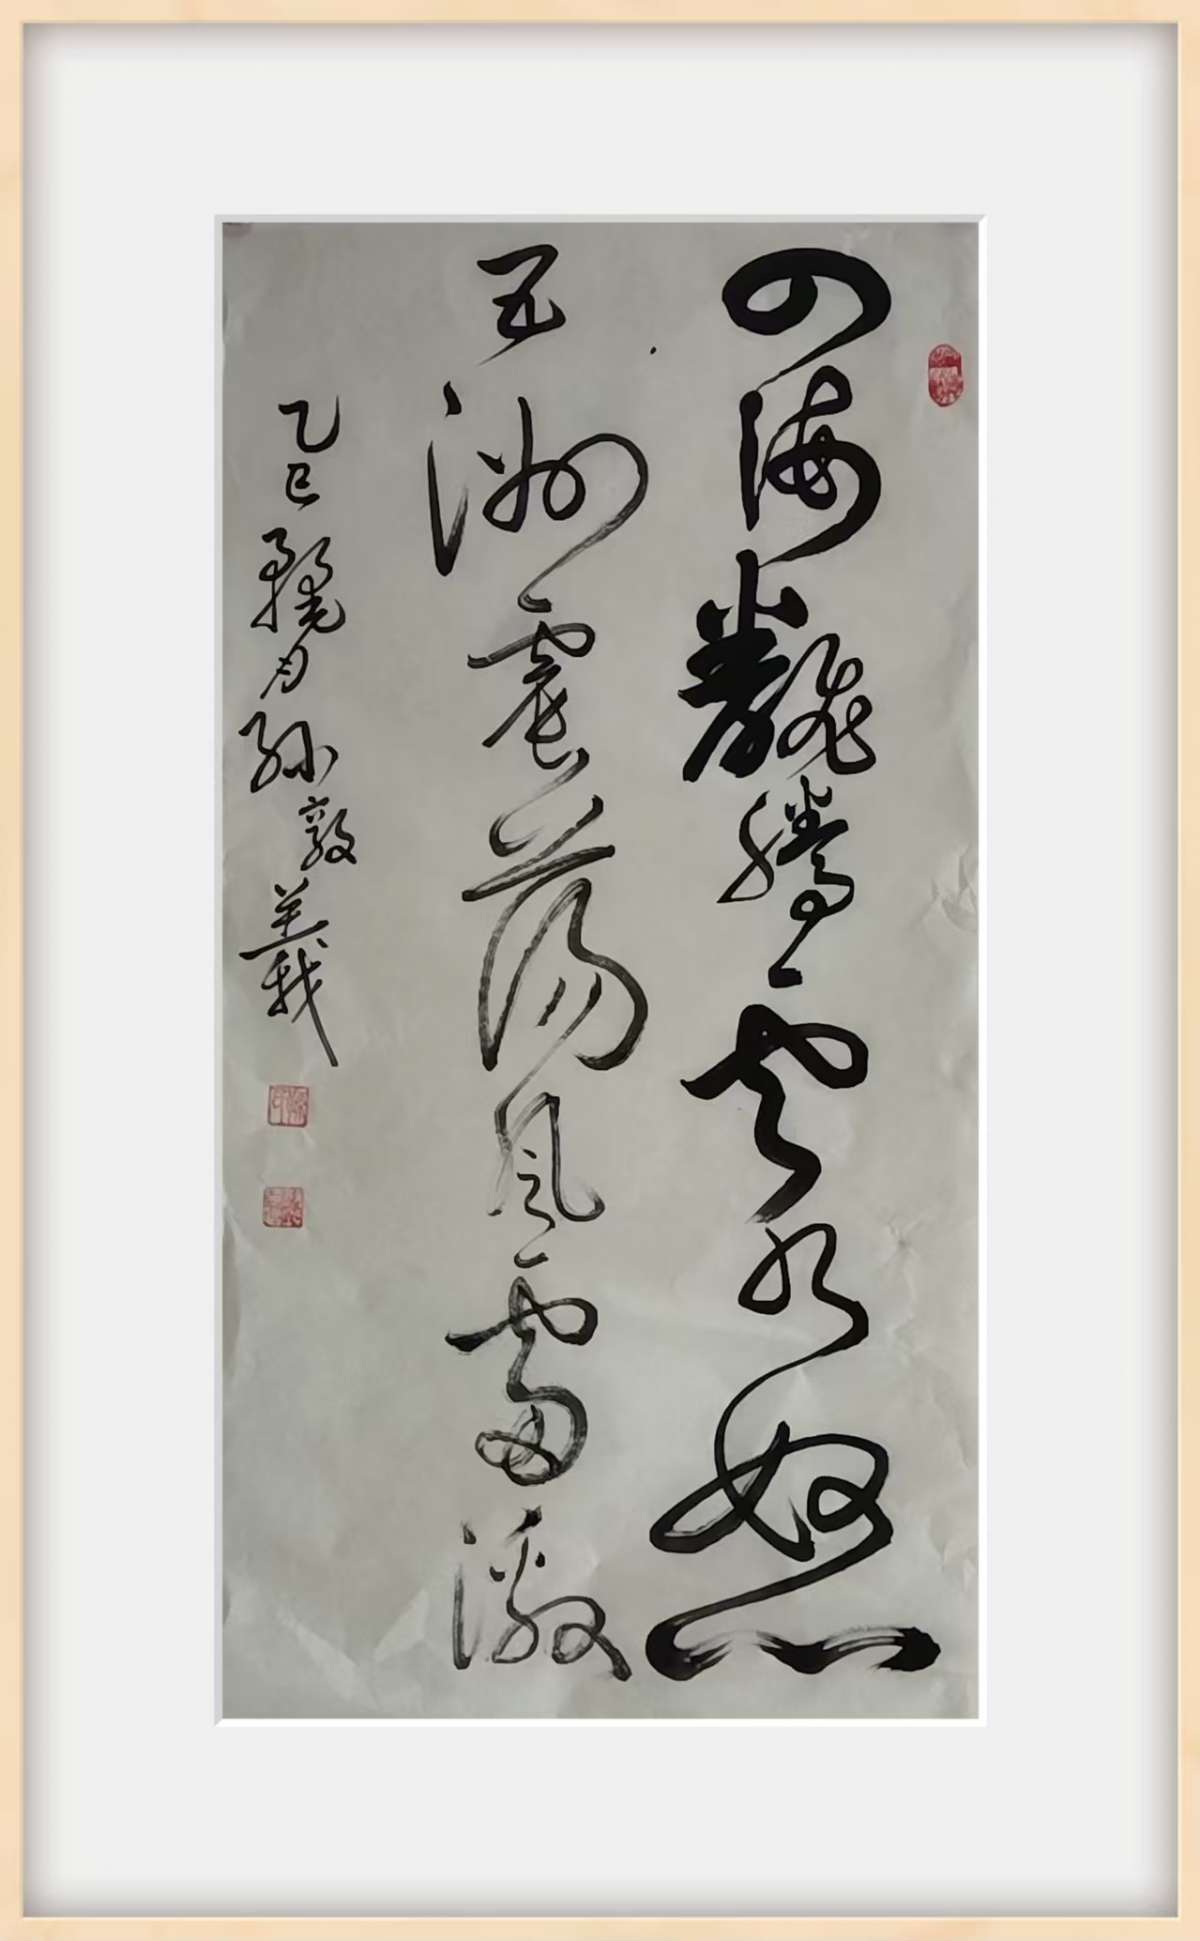 四海翻腾云水怒
五洲震荡风雷激
乙巳 月孙敦义